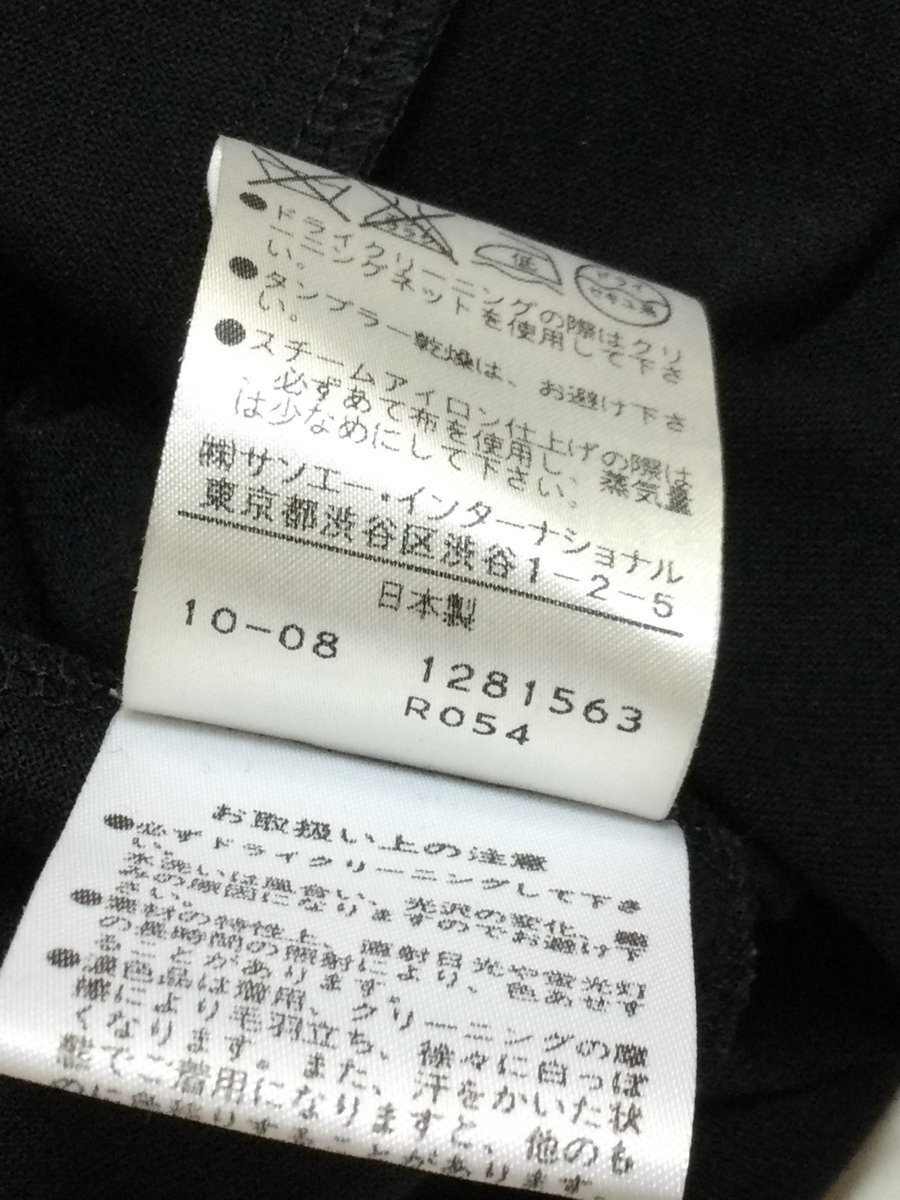 エンソ
低
ドライ
セキユ系
●ドライクリーニングの際はクリ
ーニングネットを使用して下さ
い。
●タンブラー乾燥は、お避け下さ
い。
●スチームアイロン仕上げの際は
、必ずあて布を使用し、蒸気量
は少なめにして下さい。
㈱サンエー・インターナショナル
東京都渋谷区渋谷1-2-5
日本製
10-08 1281563
R054
お取扱い上の注意
●必ずドライクリーニングして下さ
い。
水洗いは風合い、光沢の変化、縮
みの原因になりますのでお避け下
さい。
●素材の特性上、直射日光や蛍光灯
の長時間の照射により、色あせす
ることがあります。
●濃色品は着用、クリーニングの摩
擦により毛羽立ち、徐々に白っぽ
くなります。また、汗をかいた状
態でご着用になりますと、他のも
のに色移りすることがあります。